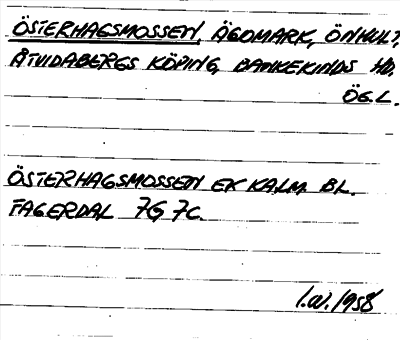 ÖSTERHAGSMOSSEN, ÄGOMARK, ÖNHULT,
ÅTVIDABERGS KÖPING, BANKEKINDS HD.
ÖGL.
ÖSTERHAGSMOSSEN EK KALM BL.
FAGERDAL 7G 7C.
I.W. 1958